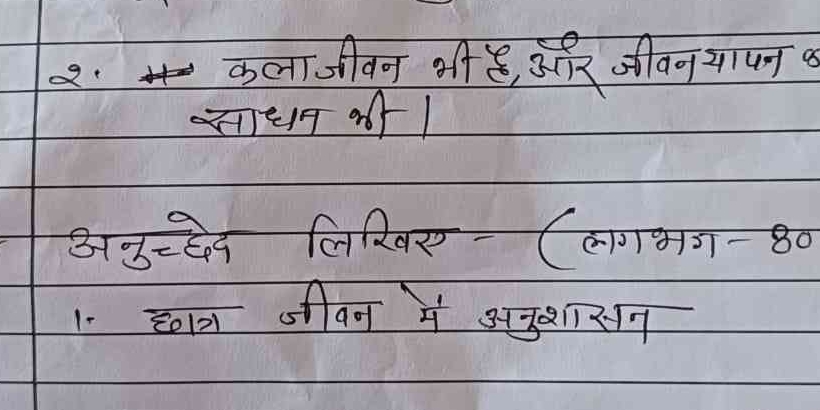 २. कला जीवन भी है, और जीवन यापन
साधन भी।
अनुच्छेद लिखिए - (लगभग - 80
1. छात्र जीवन में अनुशासन